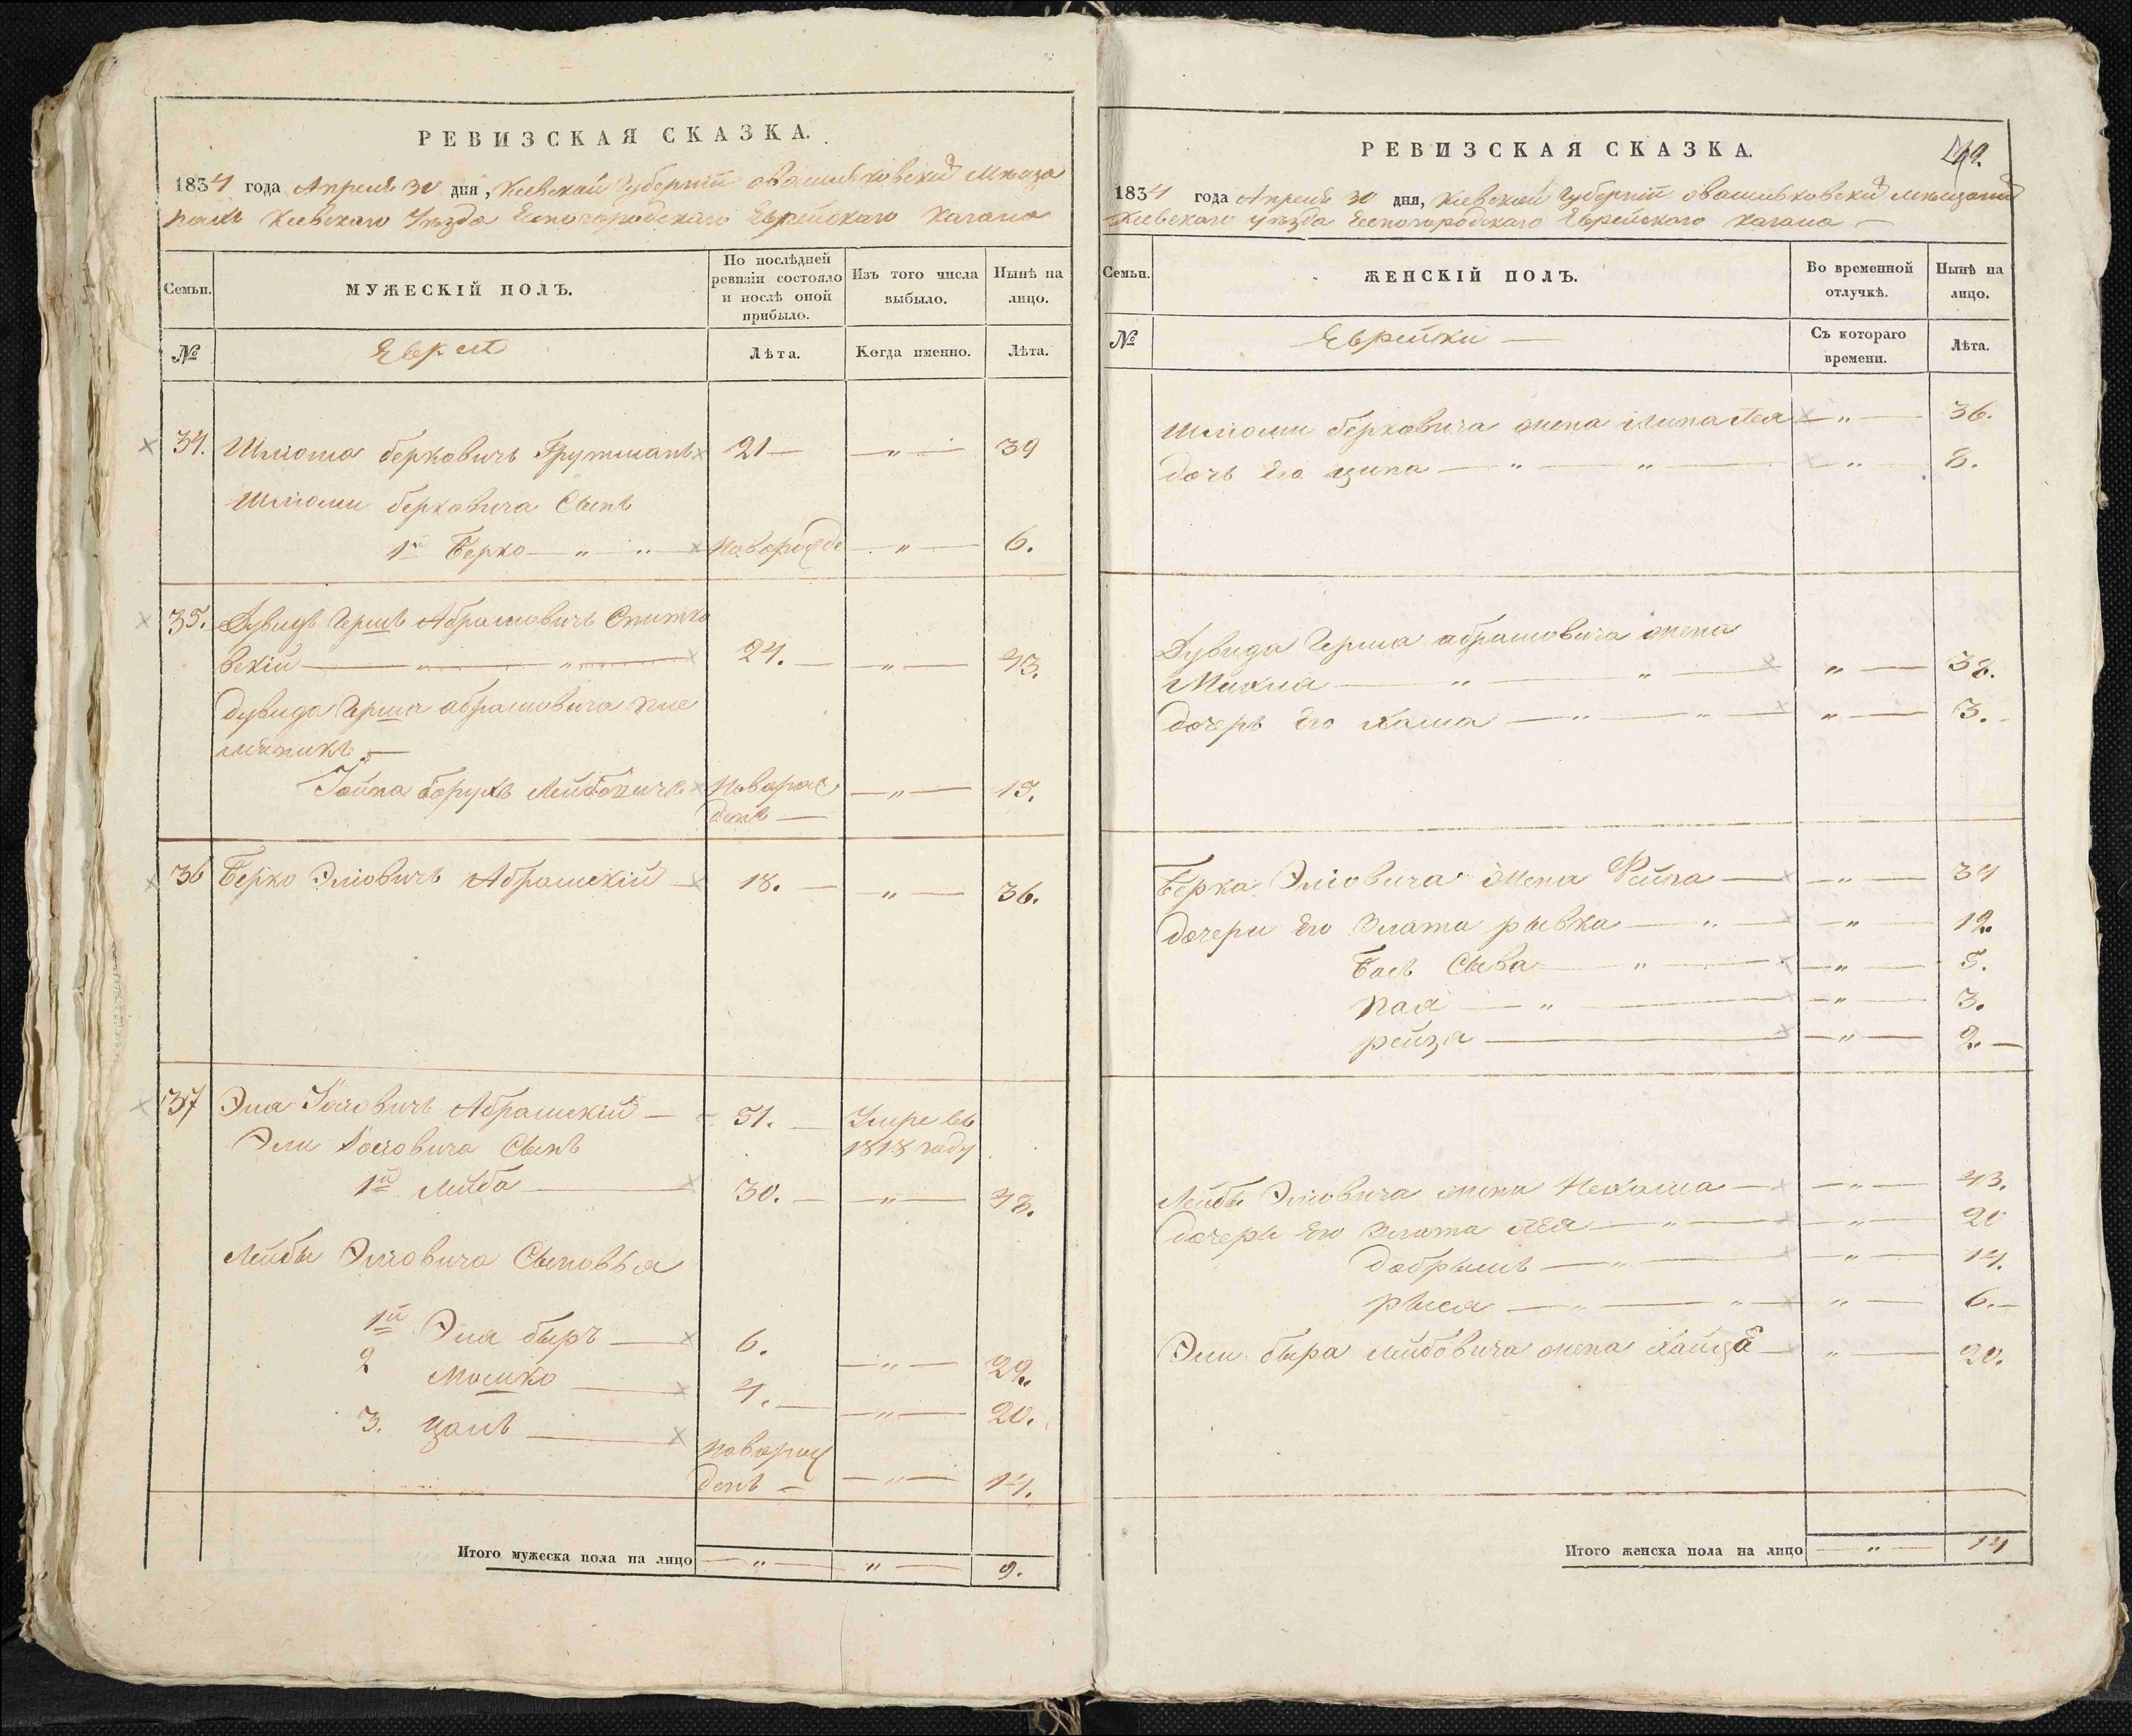 РЕВИЗСКАЯ СКАЗКА.
1834 года Апреля 30 дня, Киевской Губерніи о Васильковскихъ Мѣща
нахъ Киевскаго Уѣзда Ясногородскаго Еврейскаго Кагала
Семьи.
МУЖЕСКІЙ ПОЛЪ.
По послѣдней ревизіи состояло и послѣ оной прибыло.
Изъ того числа выбыло.
Нынѣ на лицо.
№
Евреи
Лѣта.
Когда именно.
Лѣта.
34. Шліома Берковичъ Грутманъ 21 — „ — 39
Шліоми Берковича Сынъ
1й Берко — „ — „ — новорожде — „ — 6.
35. Дувидъ Гершъ Абрамовичъ Спитко
вскій — „ — „ — 24. — „ — 43.
Дувида Герша Абрамовича пле
мяникъ —
Іойна Борухъ Лейбовичъ новорож — „ — 15.
денъ —
36 Берко Эліовичъ Абрамскій — 18. — „ — 36.
37 Эля Іосіовичъ Абрамскій — 51. — Умре въ
Эли Іосіовича Сынъ 1818 году
1й Лейба — 30. — „ — 48.
Лейбы Эліовича Сыновья
1й Эля Быръ — 6. — „ — 22.
2 Мошко — 4. — „ — 20.
3. Цаль — новорож
денъ — „ — 14.
Итого мужеска пола на лицо — „ — „ — 9.
РЕВИЗСКАЯ СКАЗКА.
1834 года Апреля 30 дня, Киевской Губерніи о Васильковскихъ Мѣщанахъ
Киевскаго уѣзда Ясногородскаго Еврейскаго Кагала —
Семьи.
ЖЕНСКІЙ ПОЛЪ.
Во временной отлучкѣ.
Нынѣ на лицо.
№
Еврейки —
Съ котораго времени.
Лѣта.
Шліоми Берковича жена Лея — „ — 36.
дочь Его Ципа — „ — „ — „ . 8.
Дувида Герша Абрамовича жена
Михля — „ — „ — „ — 38.
дочерь Его Хама — „ — „ — „ — 3.
Берка Эліовича жена Фейга — „ — 34
дочери Его Злата рывка — „ — „ — 12.
Бась Сыва — „ — „ — 5.
пая — „ — „ — 3.
рейзя — „ — 2. —
Лейбы Эліовича жена Нехама — „ — 43.
дочерь Его Злата лея — „ — „ — 20
добрышъ — „ — „ — 14.
рыся — „ — „ — „ — 6. —
Эли Быра Лейбовича жена Хайца — „ — 20.
Итого женска пола на лицо — „ — 14